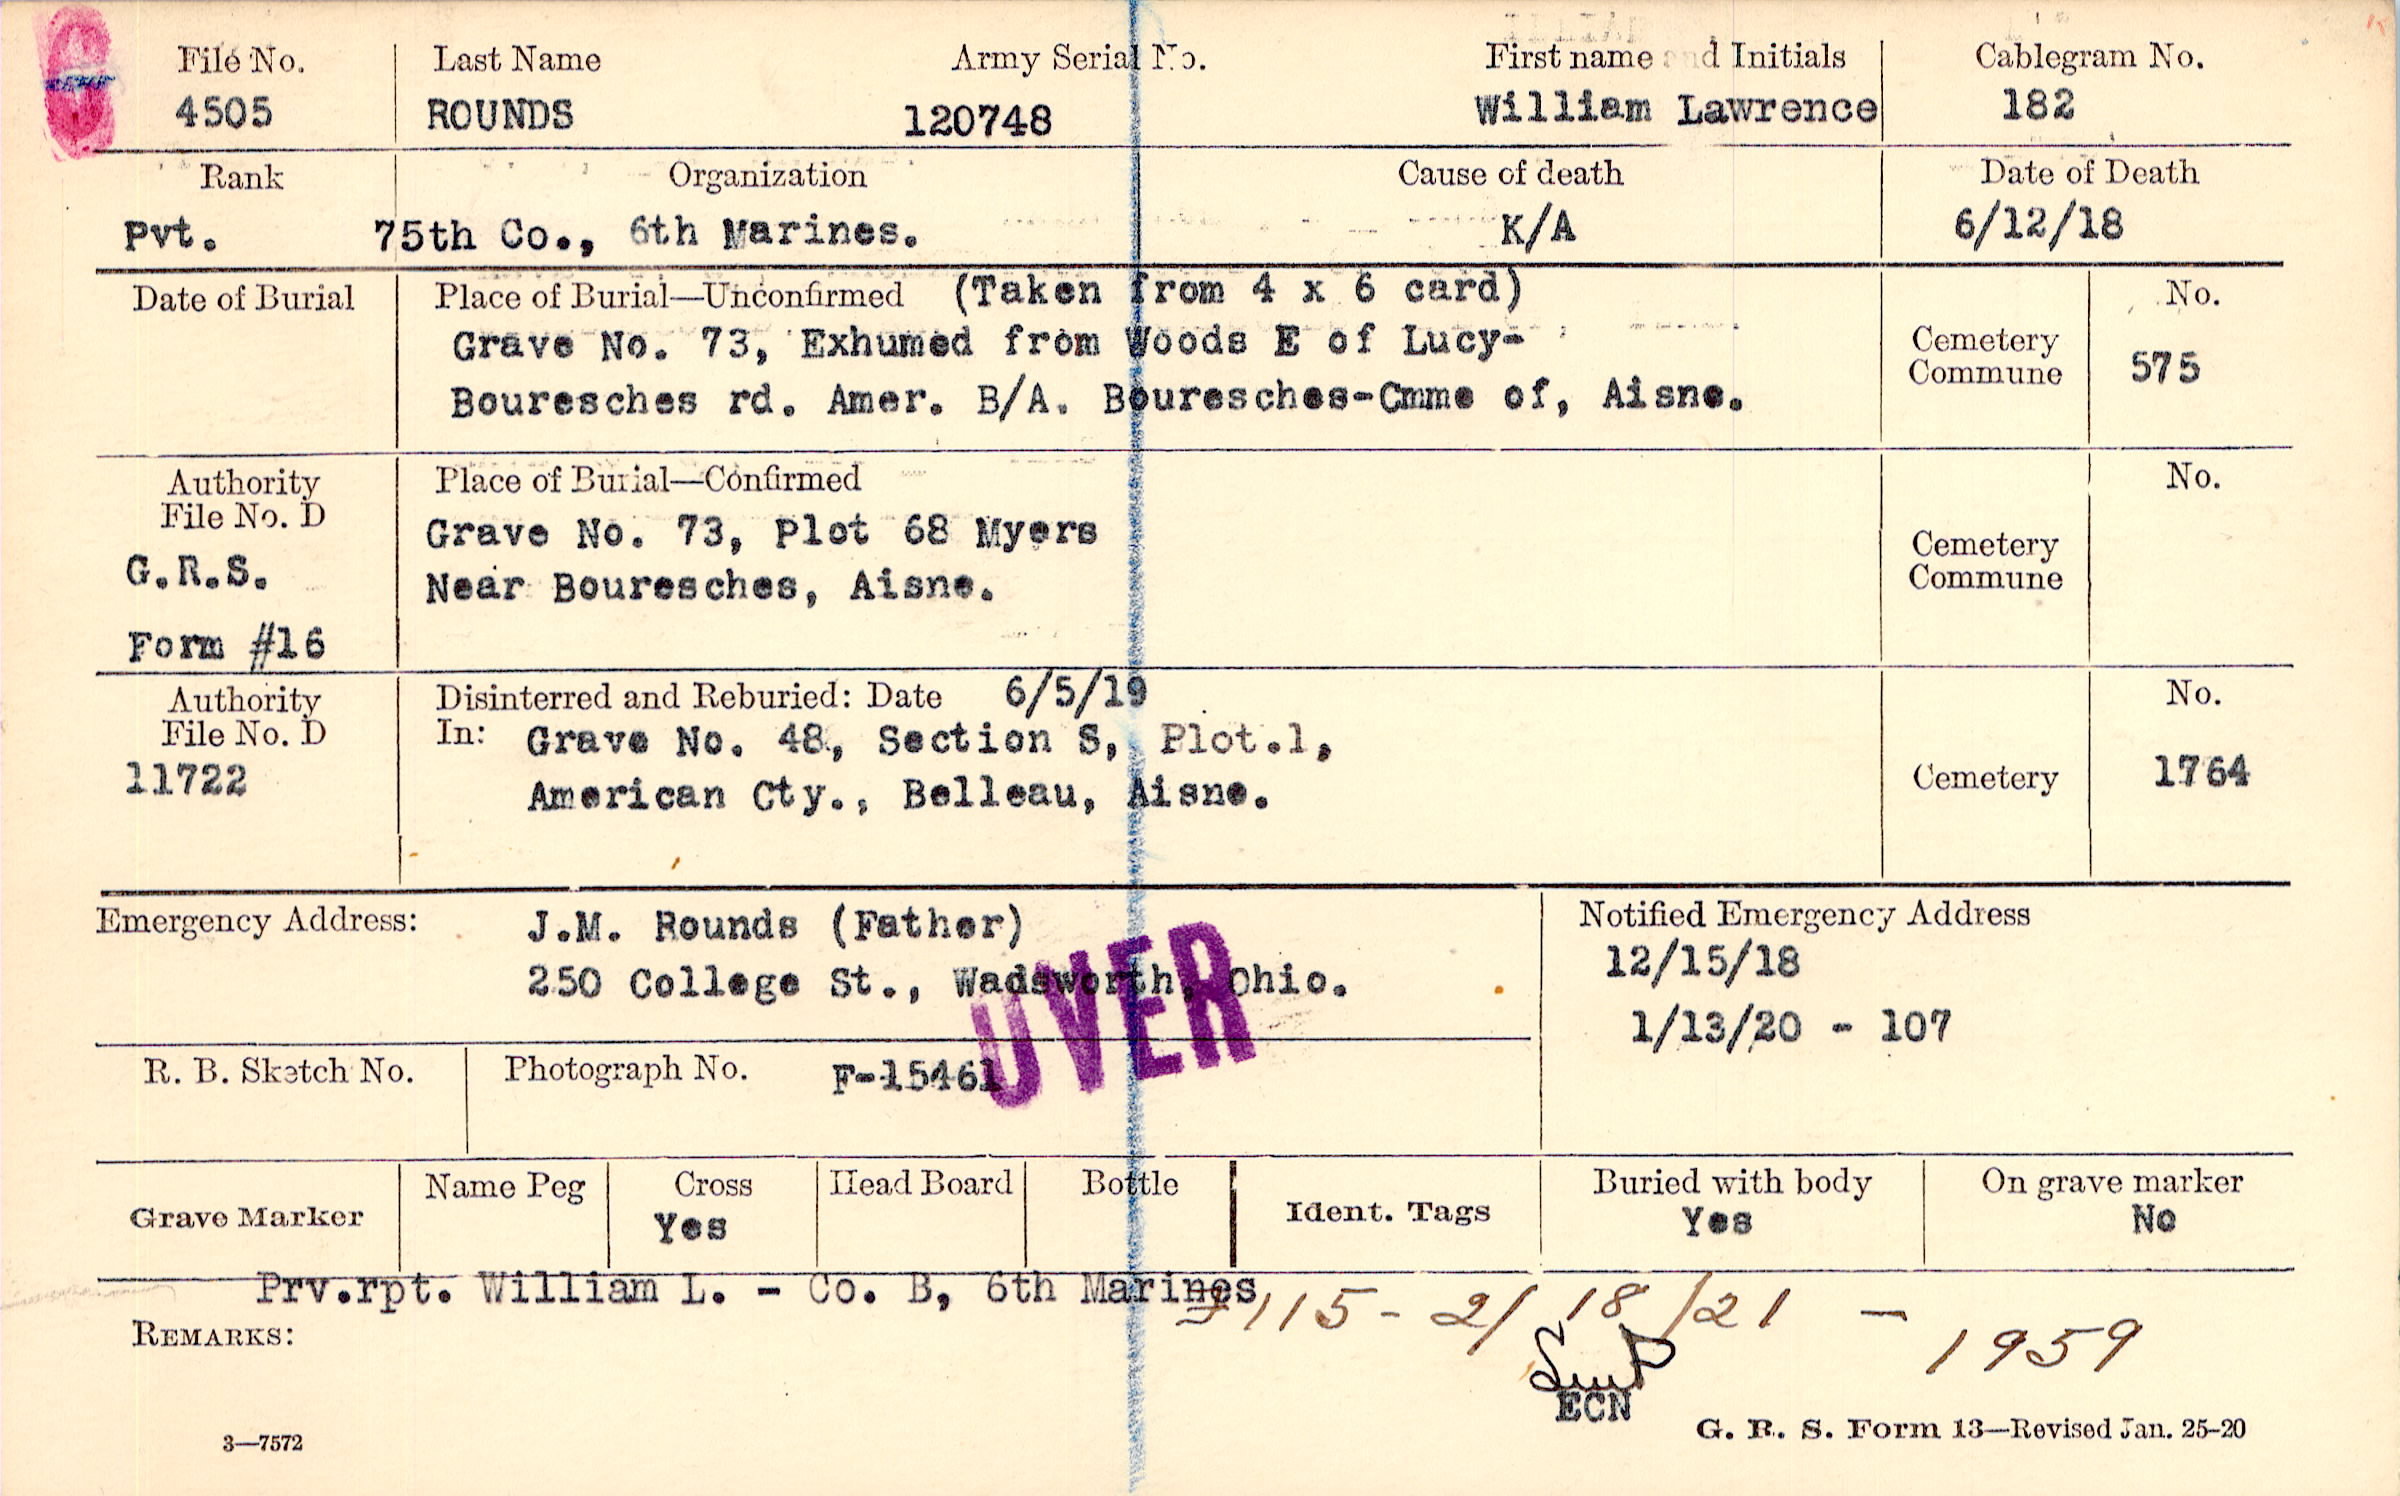 File No. Last Name Army Serial No. First name and Initials Cablegram No.
4505 ROUNDS 120748 William Lawrence 182
Rank Organization Cause of death Date of Death
Pvt. 75th Co., 6th Marines. K/A 6/12/18
Date of Burial Place of Burial—Unconfirmed (Taken from 4 x 6 card) No.
Grave No. 73, Exhumed from Woods E of Lucy-
Bouresches rd. Amer. B/A. Bouresches-Cmme of, Aisne.
Cemetery
Commune 575
Authority Place of Burial—Confirmed No.
File No. D
G.R.S.
Form #16
Grave No. 73, Plot 68 Myers
Near Bouresches, Aisne.
Cemetery
Commune
Authority Disinterred and Reburied: Date 6/5/19 No.
File No. D In: Grave No. 48, Section S, Plot.1,
11722 American Cty., Belleau, Aisne. Cemetery 1764
Emergency Address: J.M. Rounds (Father)
250 College St., Wadsworth, Ohio.
OVER
Notified Emergency Address
12/15/18
1/13/20 - 107
R. B. Sketch No. Photograph No. F-15461
Grave Marker Name Peg Cross Head Board Bottle Ident. Tags Buried with body On grave marker
Yes Yes No
Prv.rpt. William L. - Co. B, 6th Marines
115 - 2/18/21 - 1959
REMARKS:
ECN
3—7572 G. R. S. Form 13—Revised Jan. 25-20